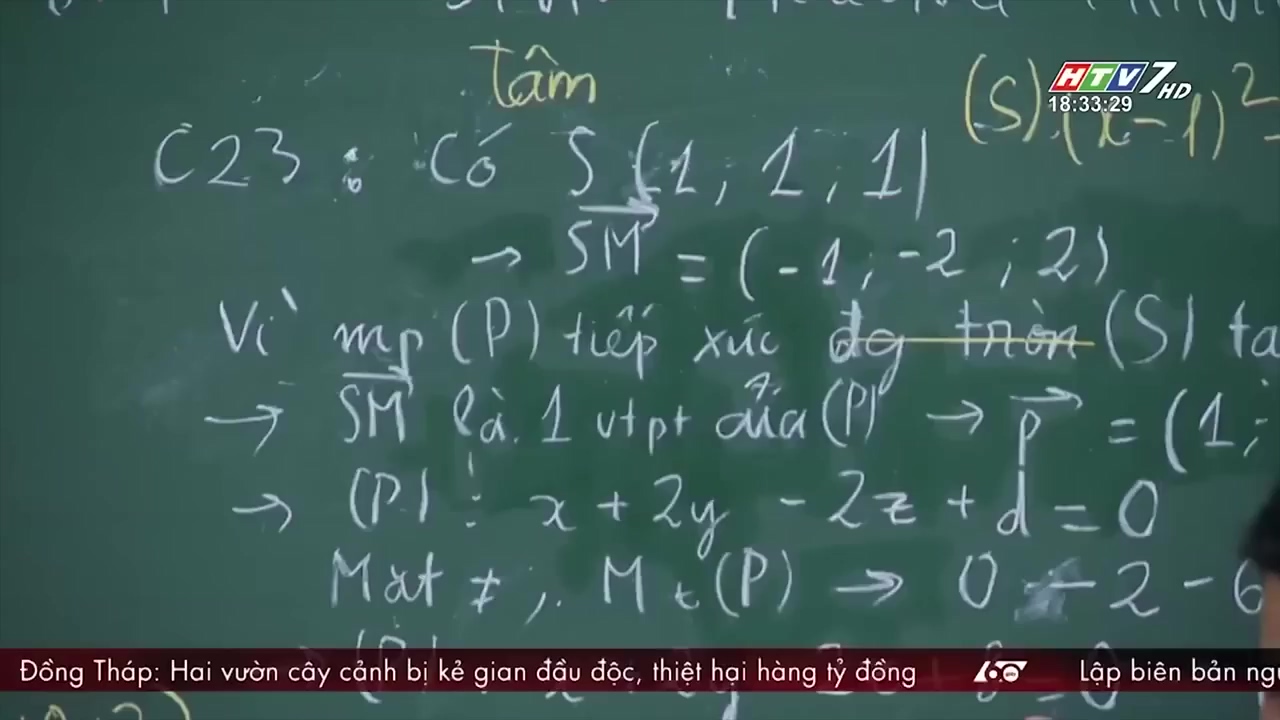 tâm
HTV7 HD
18:33:29
(S) (x-1)²
C23 : Có S(1 ; 1 ; 1)
→ SM = (-1 ; -2 ; 2)
Vì mp (P) tiếp xúc đg tròn (S) tạ
→ SM là 1 vtpt của (P) → p = (1;
→ (P) : x + 2y - 2z + d = 0
Mặt ≠ ; M ∈ (P) → 0 - 2 - 6
Đồng Tháp: Hai vườn cây cảnh bị kẻ gian đầu độc, thiệt hại hàng tỷ đồng 60 Lập biên bản ngư